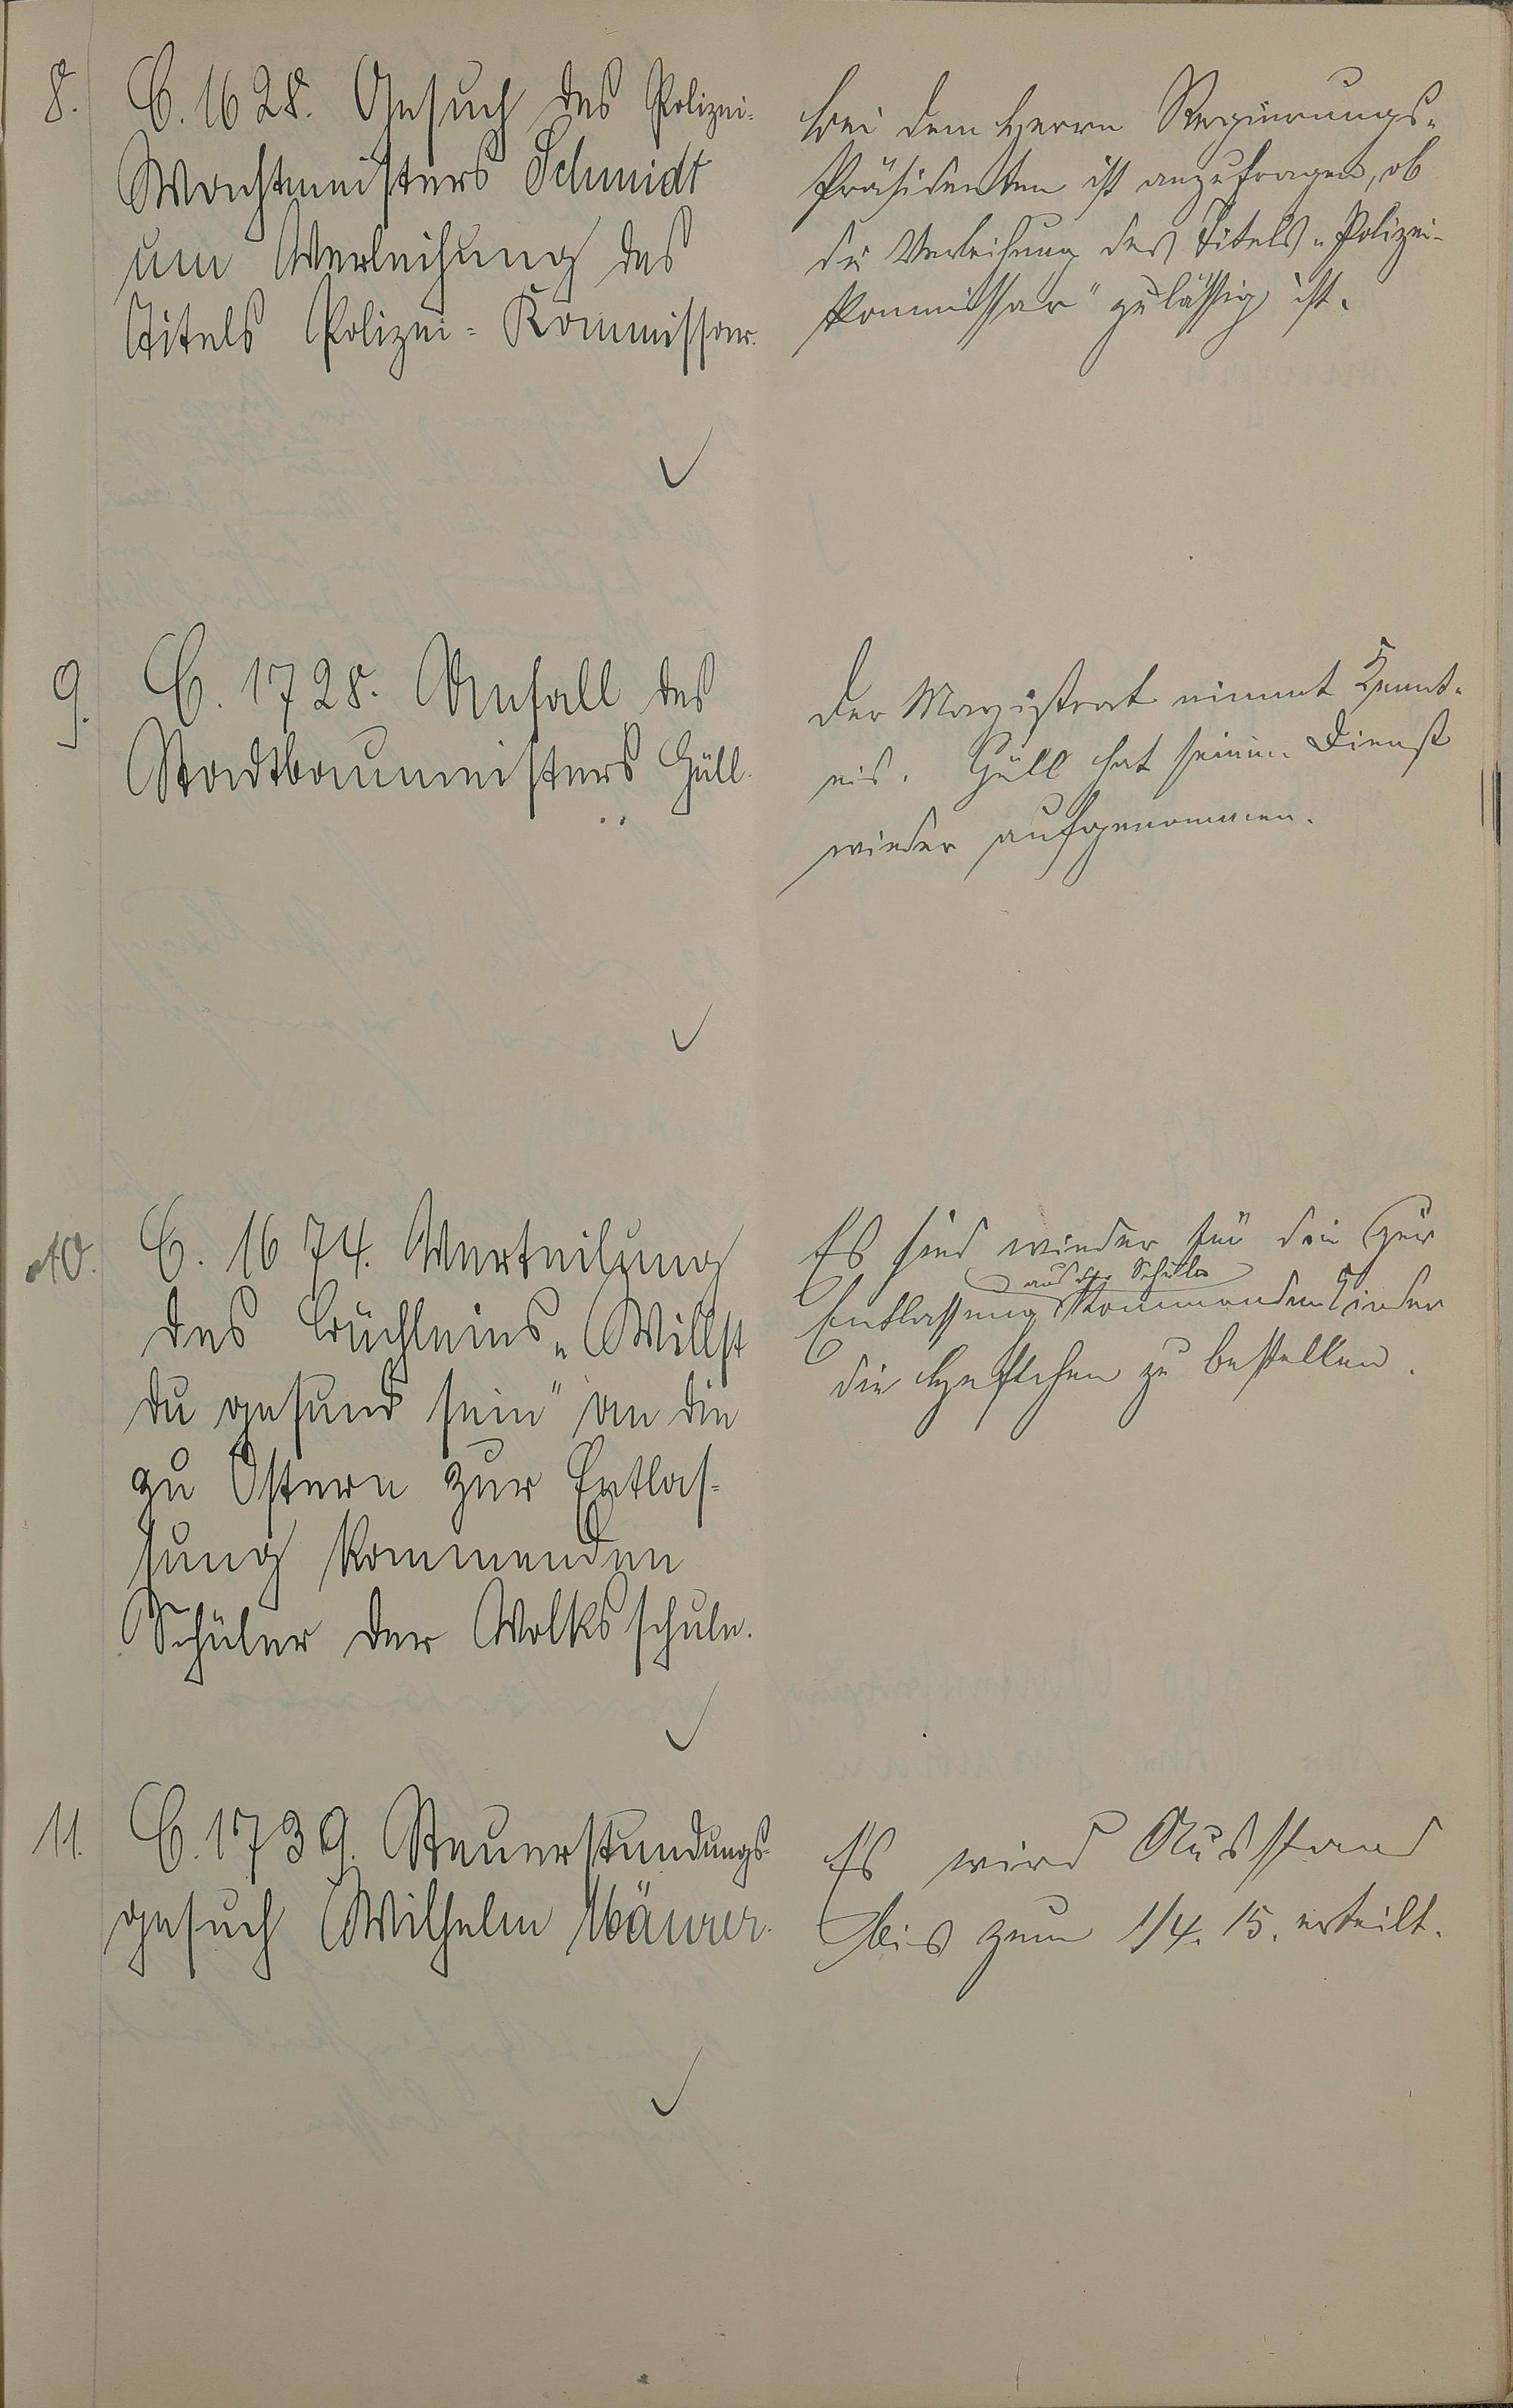 8.
C. 1628. Gesuch des Polizei-
Wachtmeisters Schmidt
um Verleihung des
Titels Polizei-Kommissar.
bei dem Herrn Regierungs-
Präsidenten ist anzufragen, ob
die Verleihung des Titels „Polizei-
Kommissar" zulässig ist.
9.
C. 1728. Unfall des
Stadtbaumeisters Güll.
Der Magistrat nimmt Kennt-
nis. Güll hat seinen Dienst
wieder aufgenommen.
10.
C. 1674. Verteilung
des Büchleins „Willst
du gesund sein" an die
zu Ostern zur Entlas-
sung kommenden
Schüler der Volksschule.
Es sind wieder für die zur
aus der Schule
Entlassung kommenden Kinder
die Heftchen zu bestellen.
11.
C. 1739. Steuerstundungs-
gesuch Wilhelm Mäurer.
Es wird Ausstand
bis zum 1/4. 15. erteilt.